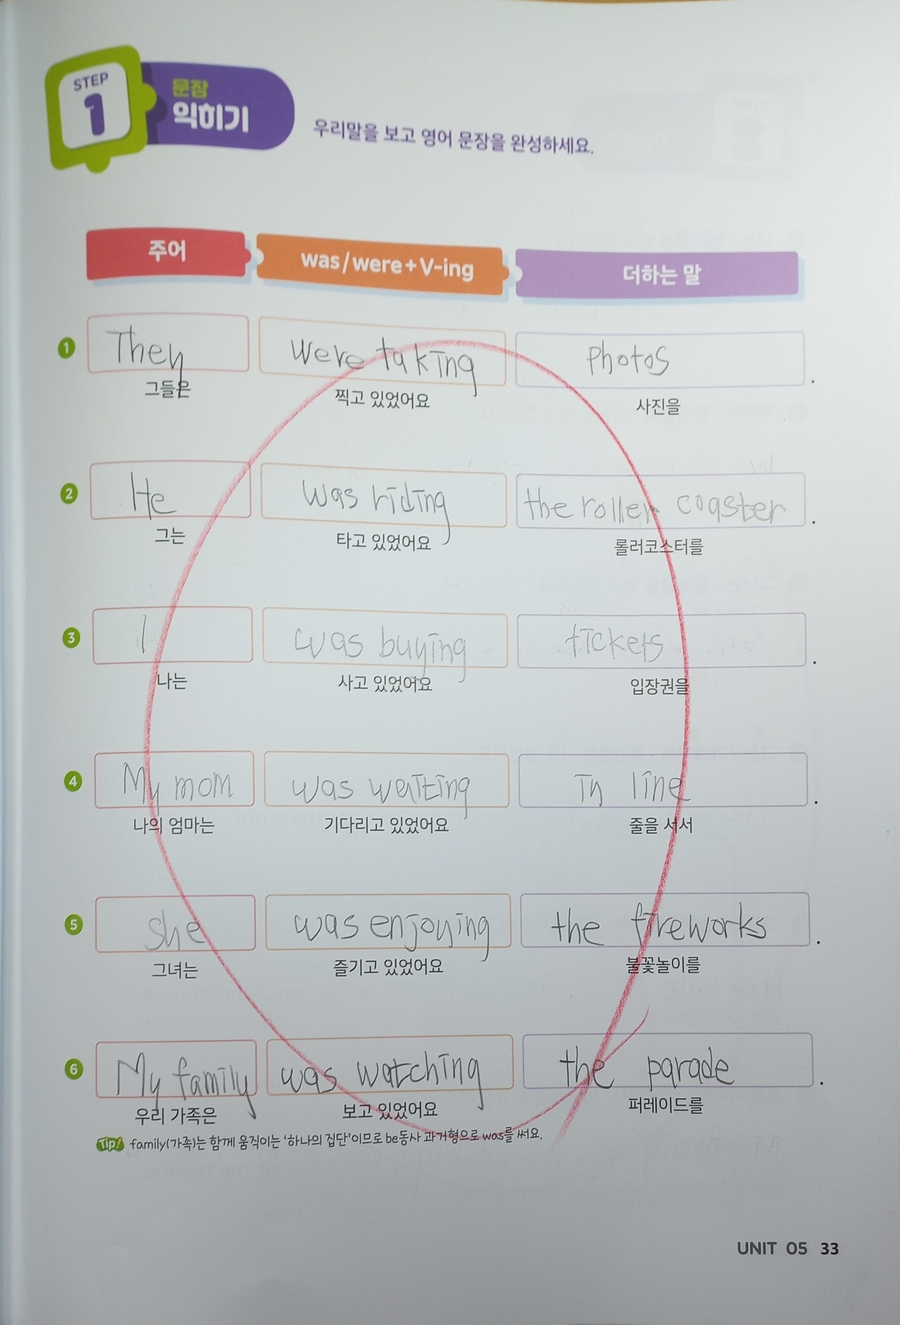 STEP
1
문장
익히기
우리말을 보고 영어 문장을 완성하세요.
주어 was/were+V-ing 더하는 말
1 They were taking photos .
그들은 찍고 있었어요 사진을
2 He was riding the roller coaster .
그는 타고 있었어요 롤러코스터를
3 I was buying tickets .
나는 사고 있었어요 입장권을
4 My mom was waiting in line .
나의 엄마는 기다리고 있었어요 줄을 서서
5 she was enjoying the fireworks .
그녀는 즐기고 있었어요 불꽃놀이를
6 My family was watching the parade .
우리 가족은 보고 있었어요 퍼레이드를
Tip! family(가족)는 함께 움직이는 '하나의 집단'이므로 be동사 과거형으로 was를 써요.
UNIT 05 33